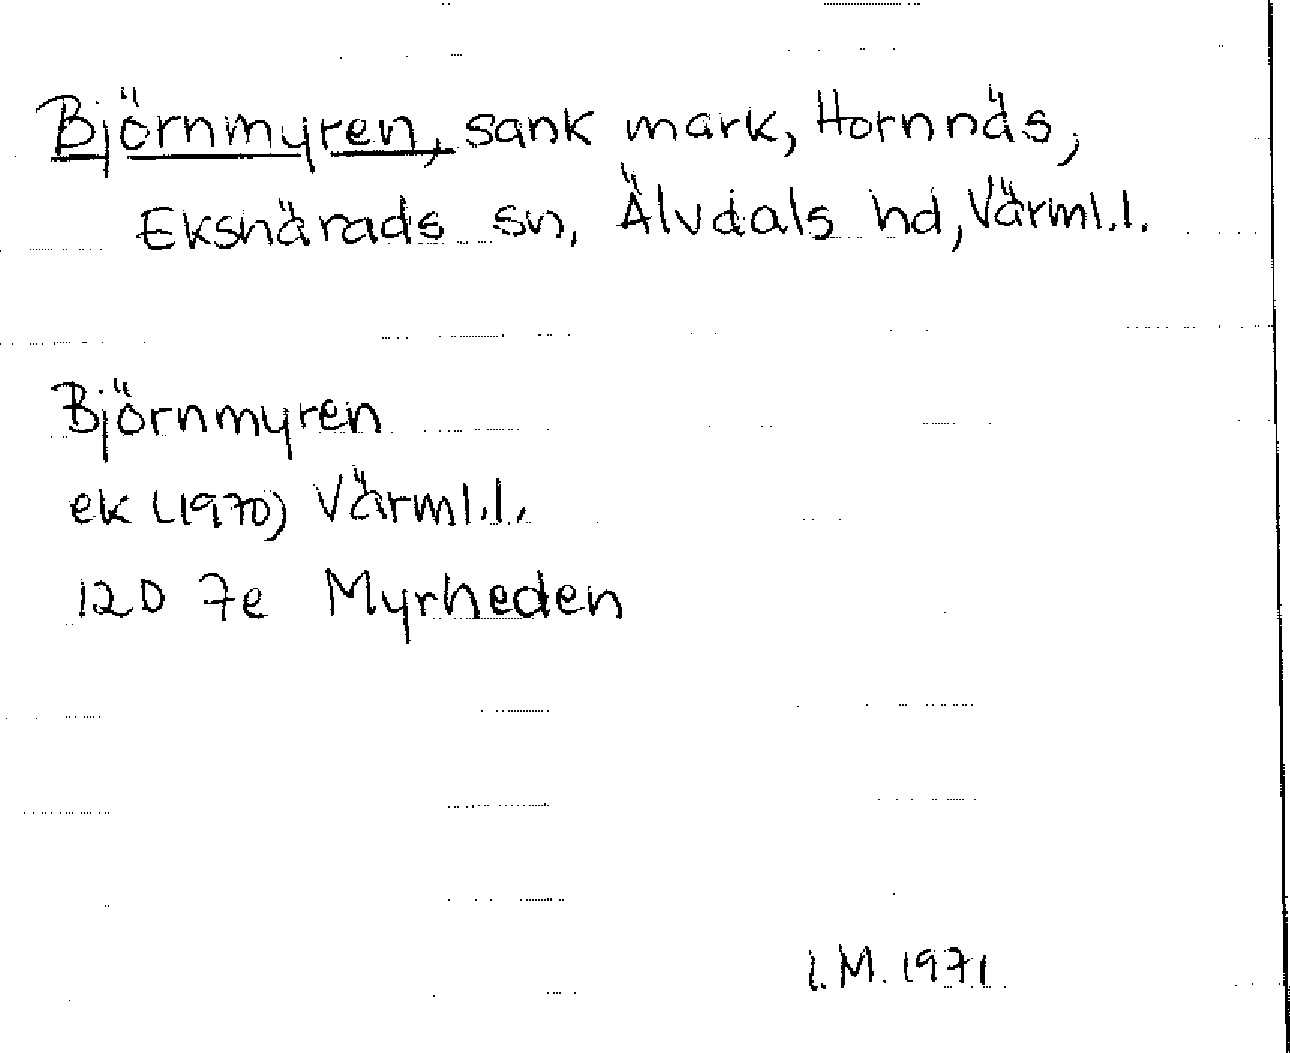 Björnmyren, sank mark, Hornnäs,
Ekshärads sn, Älvdals hd, Värml.l.
Björnmyren
ek (1970) Värml.l.
12D 7e Myrheden
I.M. 1971